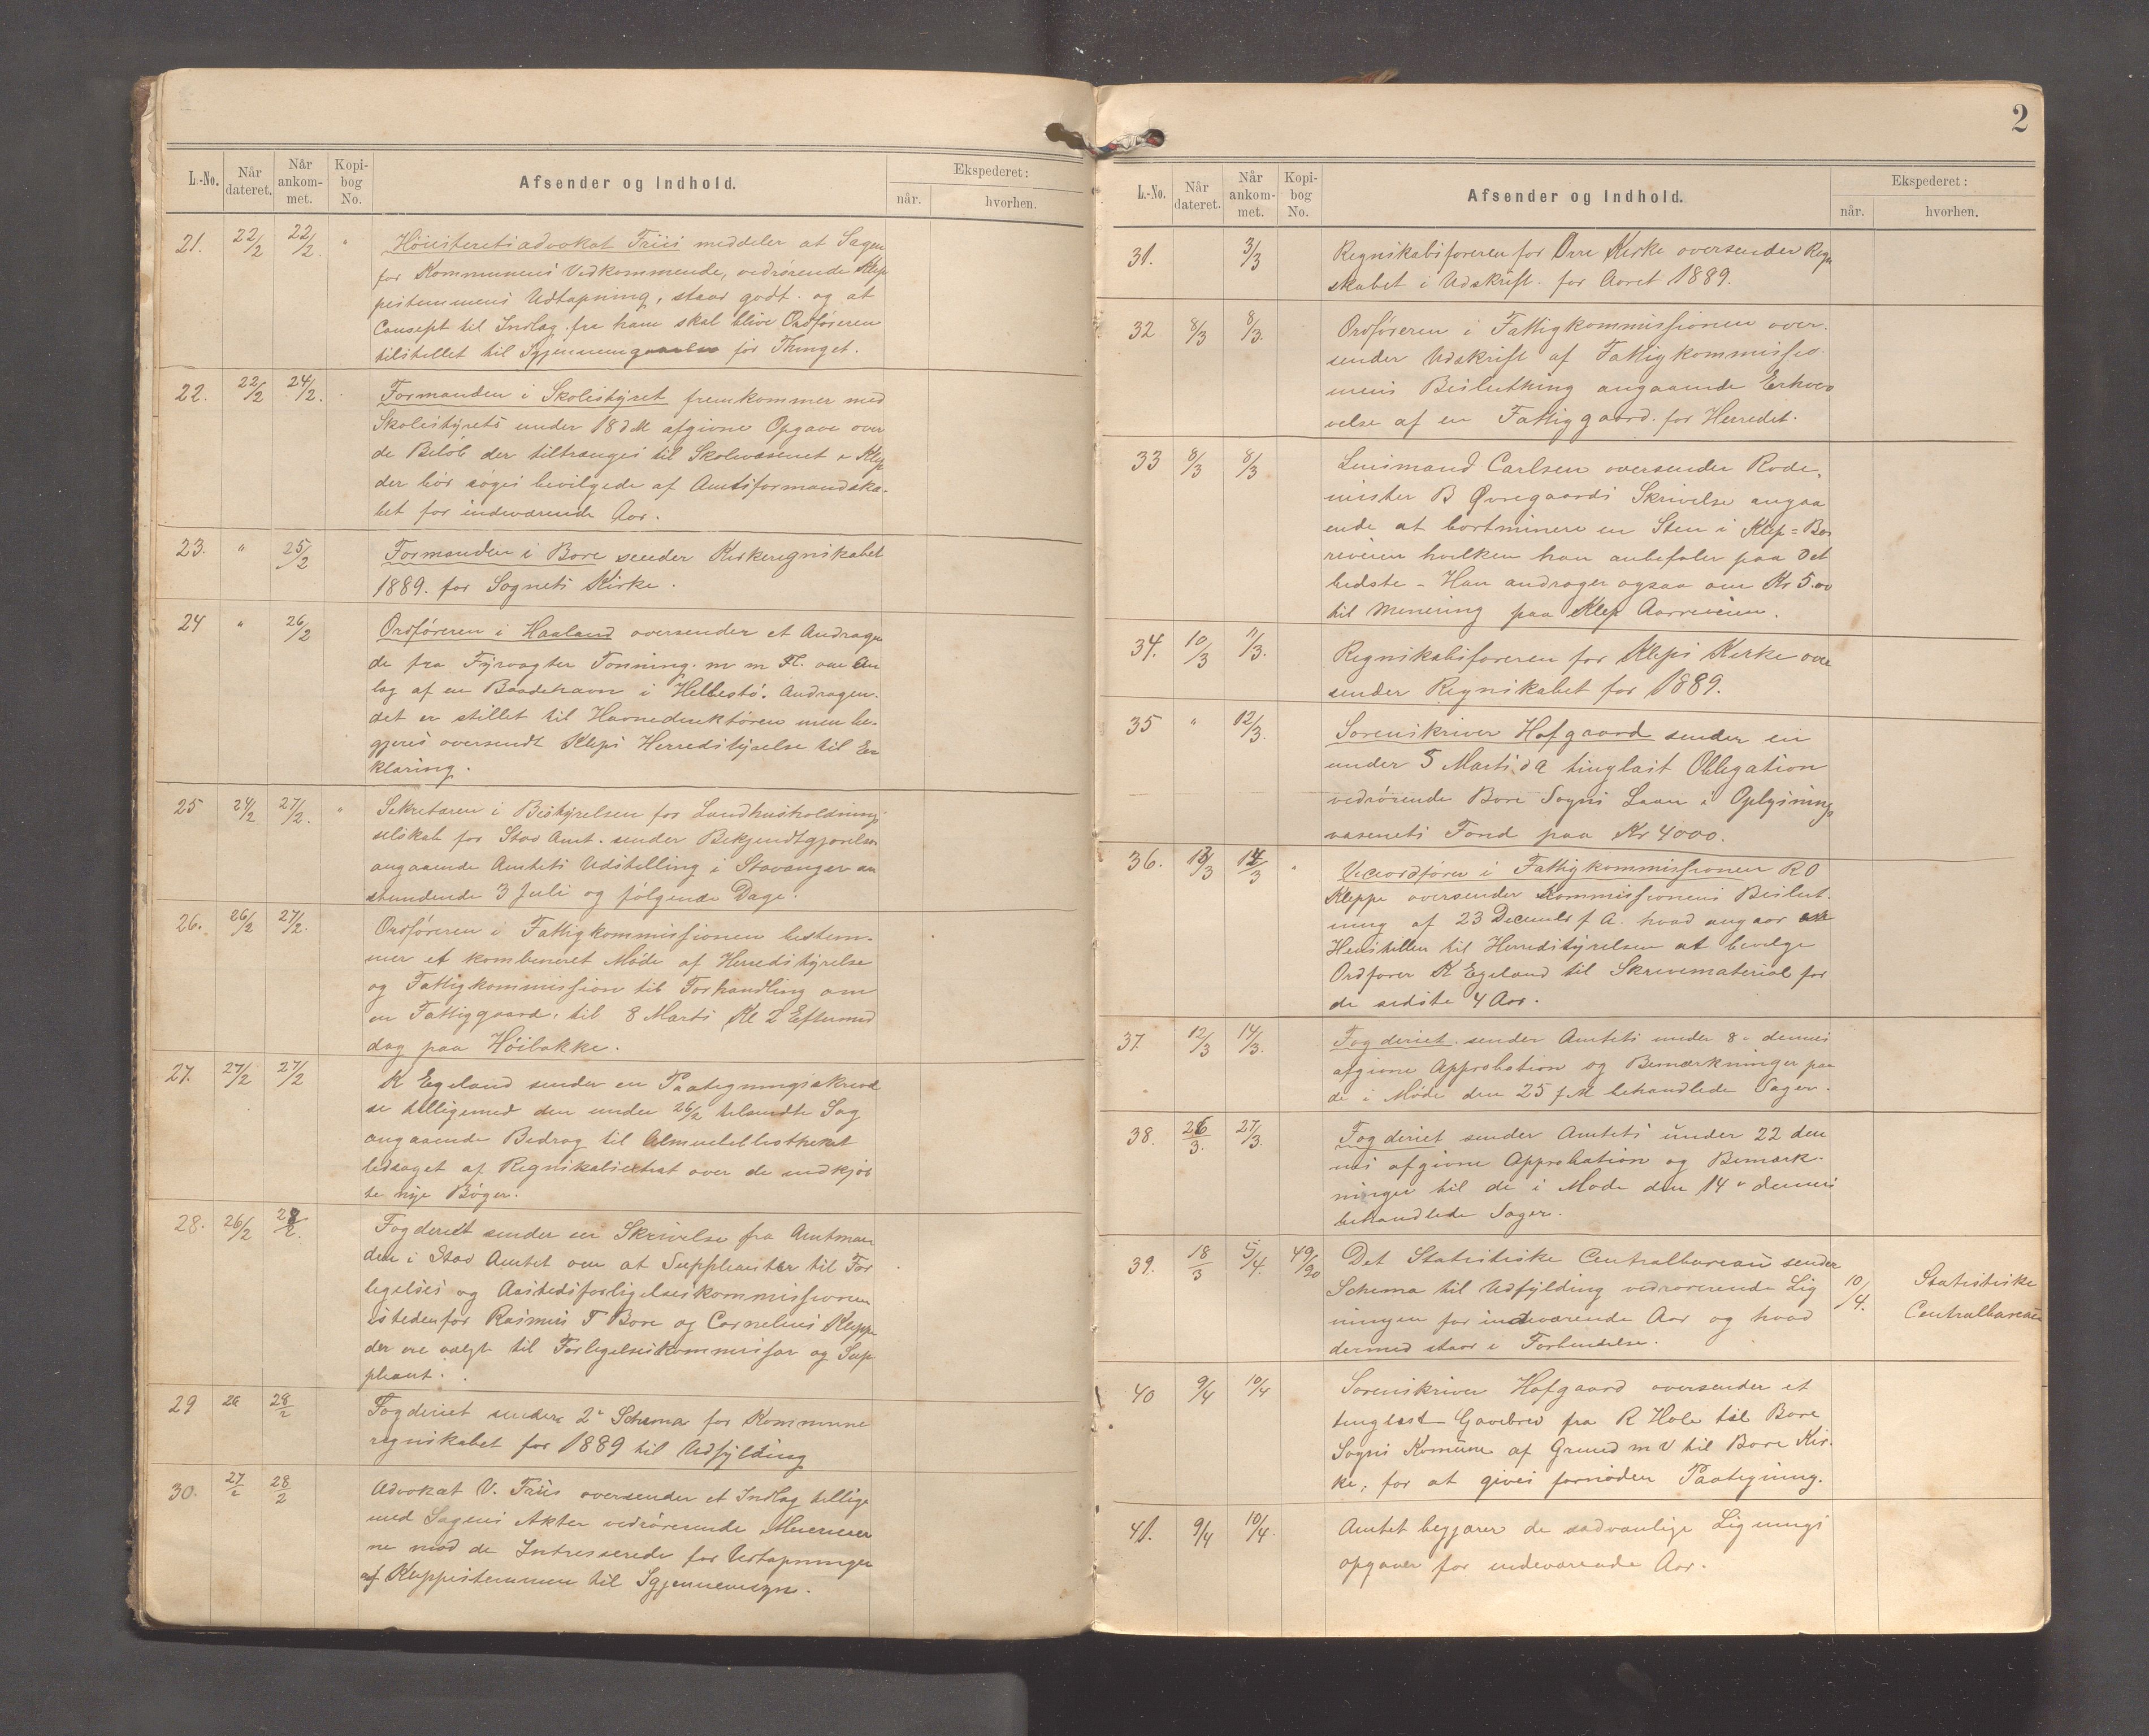 L.-No. Når dateret. Når ankom-met. Kopi-bog No. Afsender og Indhold. Ekspederet: når. hvorhen.
21. 22/2 22/2. " Höiesteretsadvokat Friis meddeler at Sagen
for Kommunens Vedkommende, vedrørende Klep
pestemmens Udtapning, staar godt. og at
Consept til Indlæg fra ham skal blive Ordføreren
tilstillet til Igjennem for Thinget.
22. 22/2 24/2. Formanden i Skolestyret fremkommer med
Skolestyrets under 18 d M afgivne Opgave over
de Beløb der tiltrænges til Skolevæsenet i Klep
der bør søges bevilgede af Amtsformandska-
bet for indeværende Aar.
23. " 25/2 Formanden i Bore sender Kirkeregnskabet
1889. for Sognets Kirke.
24 " 26/2 Ordføreren i Haaland oversender et Andragen
de fra Fyrvogter Tonning. m m Fl. om An
læg af en Baadehavn i Hellestø. Andragen-
det er stillet til Havnedirektøren men be-
gjeres oversendt Kleps Herredstyrelse til Er
klæring.
25 24/2 27/2. " Sekretæren i Bestyrelsen for Landhusholdnings
selskab for Stav Amt. sender Bekjendtgjørelse
angaaende Amtets Udstilling i Stavanger an
stundende 3 Juli og følgende Dage.
26. 26/2 27/2. Ordføreren i Fattigkommissionen bestem-
mer et kombineret Møde af Herredstyrelse
og Fattigkommission til Forhandling om
en Fattiggaard, til 8 Marts Kl 2 Eftermid
dag paa Høibakke.
27. 27/2 27/2 K Egeland sender en Paategningsskrivel
se tilligemed den under 26/2 tilsendte Sag
angaaende Bidrag til Almuebibliotheket
ledsaget af Regnskabsextrat over de indkjøb
te nye Bøger.
28. 26/2 28/2. Fogderiet sender en Skrivelse fra Amtman
den i Stav Amtet om at Suppleanter til For
ligelses og Aastedsforligelseskommissionen
istedenfor Rasmus T Bore og Cornelius Kleppe
der ere valgt til Forligelseskommissær og Sup
pleant.
29 28/2 Fogderiet sender 2 Schema for Kommune
regnskabet for 1889 til Udfylding
30. 27/2 28/2 Advokat V. Friis oversender et Indlæg tillige
med Sagens Akter vedrørende
ne mod de Intresserede for Udtapningen
af Kleppestemmen til Igjennemsyn.
2
L.-No. Når dateret. Når ankom-met. Kopi-bog No. Afsender og Indhold. Ekspederet: når. hvorhen.
31. 3/3 Regnskabsføreren for Orre Kirke oversender Regn
skabet i Udskrift for Aaret 1889.
32 8/3 8/3. Ordføreren i Fattigkommissionen over-
sender Udskrift af Fattigkommissio-
nens Beslutning angaaende Erhver
velse af en Fattiggaard for Herredet.
33 8/3 8/3 Lensmand Carlsen oversender Rode-
mister B Øvregaards Skrivelse angaa
ende at bortminere en Sten i Klep=Bo
reveien hvilken han anbefaler paa det
bedste - Han andrager ogsaa om Kr 5.00
til Minering paa Klep Aarreveien.
34. 10/3 11/3. Regnskabsføreren for Kleps Kirke over
sender Regnskabet for 1889.
35 " 12/3. Sorenskriver Hofgaard sender en
under 5 Marts d A tinglæst Obligation
vedrørende Bore Sogns Laan i Oplysnings
væsenets Fond paa Kr 4000.
36. 13/3 14/3 " Viceordfører i Fattigkommissionen R O
Kleppe oversender Kommissionens Beslut-
ning af 23 December f A. hvad angaar
Henstillen til Herredstyrelsen at bevilge
Ordfører K Egeland til Skrivematerial for
de sidste 4 Aar.
37. 12/3 14/3. Fogderiet sender Amtets under 8 dennes
afgivne Approbation og Bemærkninger paa
de i Møde den 25 f M behandlede Sager.
38. 26/3. 27/3. Fogderiet sender Amtets under 22 den
nes afgivne Approbation og Bemærk-
ninger til de i Møde den 14 dennes
behandlede Sager.
39. 18/3 5/4. 49/90 Det Statistiske Centralbureau sender
Schema til Udfylding vedrørerende Lig
ningen for indeværende Aar og hvad
dermed staar i Forbindelse. 10/4. Statistiske
Centralbureau
40 9/4 10/4 Sorenskriver Hofgaard oversender et
tinglæst Gavebrev fra R Hole til Bore
Sogns Komune af Grund m V til Bore Kir-
ke, for at gives fornøden Paategning.
41. 9/4 10/4. Amtet begjærer de sædvanlige Lignings
opgaver for indeværende Aar.